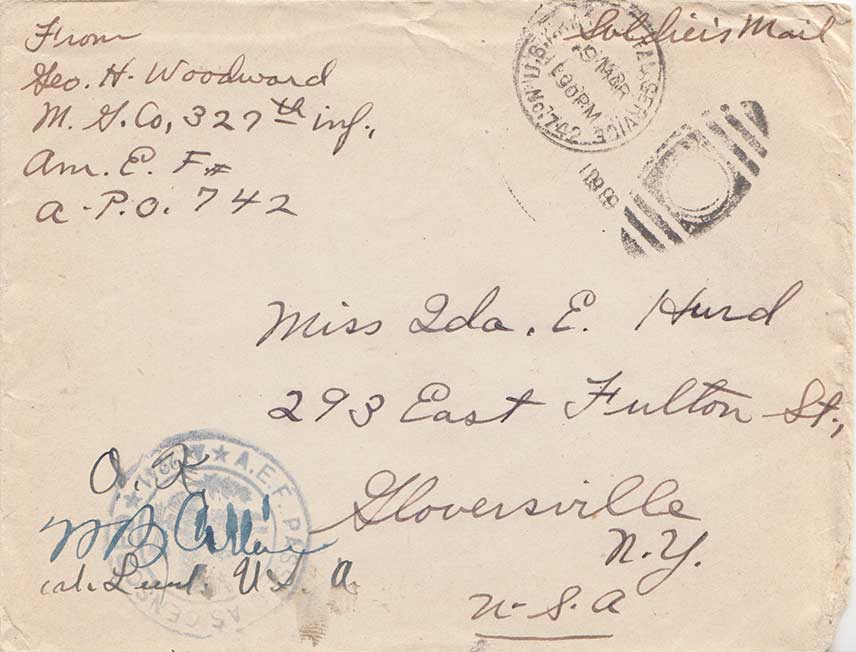 From
Geo. H. Woodward
M. G. Co, 327th inf.,
Am. E. F.
A-P.O. 742
Soldier's Mail
U.S. SERVICE
No. 742
9 MAR
1 30 PM
Miss Ida. E. Hurd
293 East Fulton St.,
Gloversville
N.Y.
U-S.A
O.K
A.E.F. PASSED AS CENSORED
1st. Lieut. U.S.A.